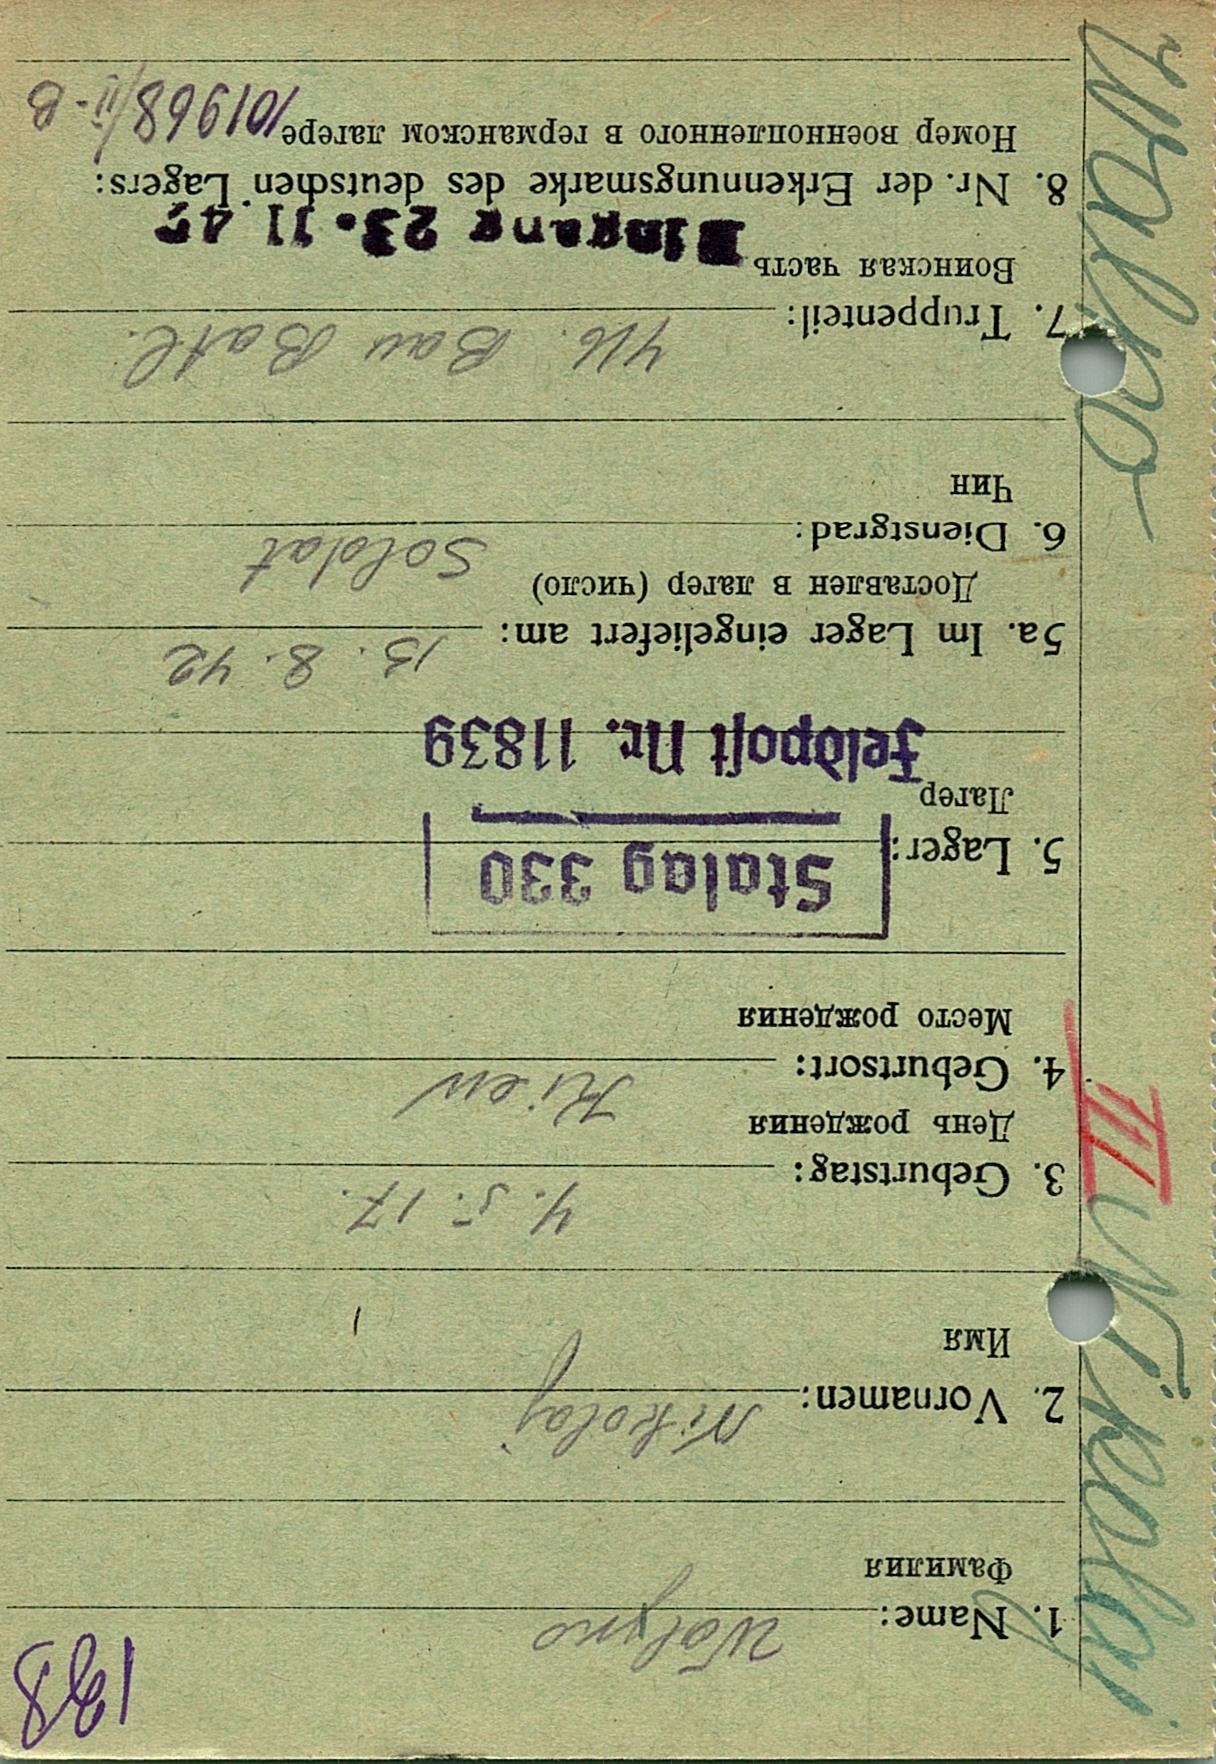 138
1. Name: Walyno
Фамилия
2. Vornamen: Nikolaj
Имя
3. Geburtstag: 4. 5. 17.
День рождения
4. Geburtsort: Kiew
Место рождения
Stalag 330
5. Lager:
Лагер
Feldpost Nr. 11839
5a. Im Lager eingeliefert am: 13. 8. 42
Доставлен в лагер (число)
6. Dienstgrad: Soldat
Чин
7. Truppenteil: 416. Bau Batl.
Воинская часть
Eingang 23. 11. 42
8. Nr. der Erkennungsmarke des deutschen Lagers:
Номер военнопленного в германском лагере 101968/II-B
Nikolai
II